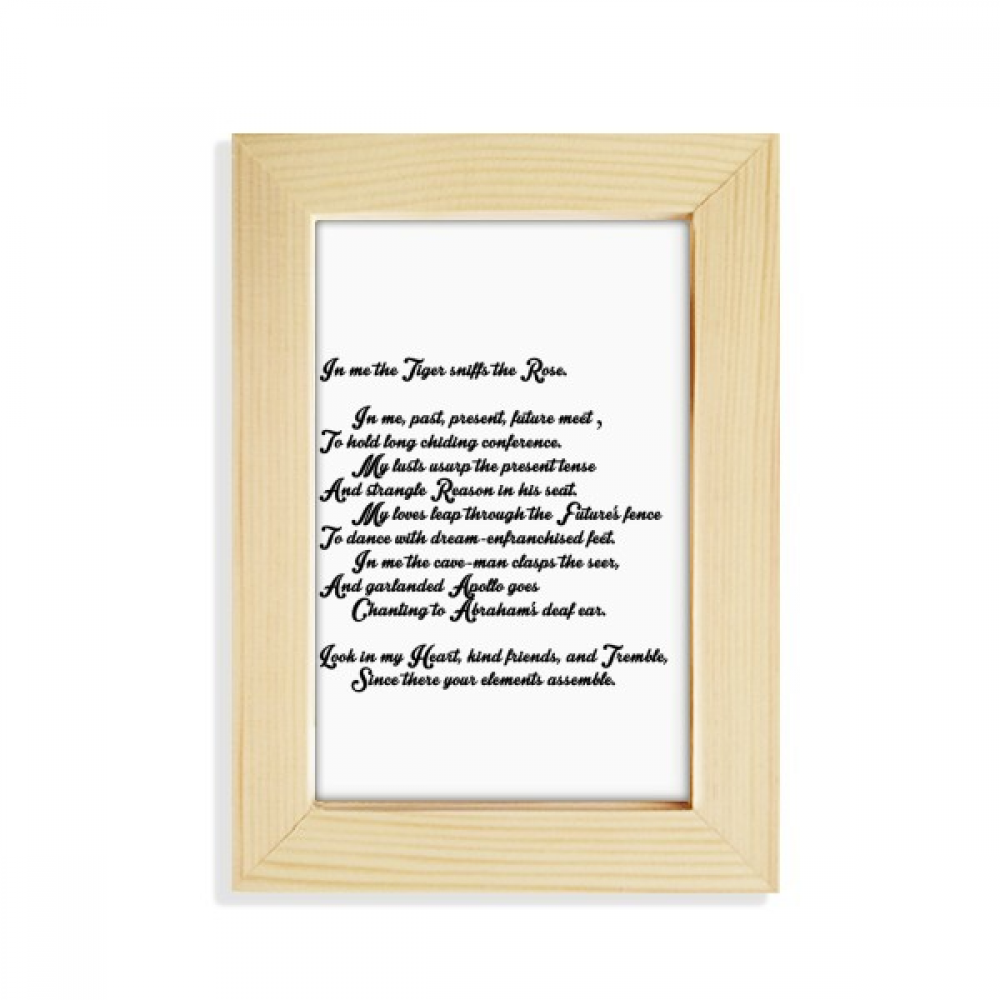 In me the Tiger sniffs the Rose.
In me, past, present, future meet ,
To hold long chiding conference.
My lusts usurp the present tense
And strangle Reason in his seat.
My loves leap through the Future's fence
To dance with dream-enfranchised feet.
In me the cave-man clasps the seer,
And garlanded Apollo goes
Chanting to Abraham's deaf ear.
Look in my Heart, kind friends, and Tremble,
Since there your elements assemble.